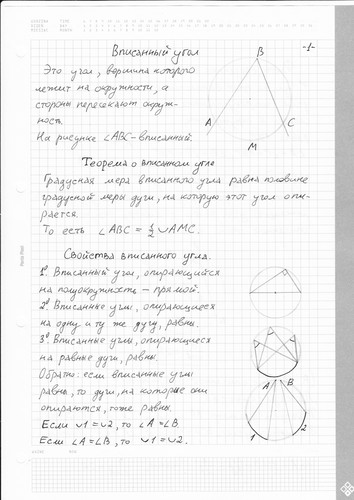 Вписанный угол
-1-
Это угол, вершина которого
лежит на окружности, а
стороны пересекают окруж-
ность.
На рисунке ∠ABC-вписанный.
B
A
C
M
Теорема о вписанном угле
Градусная мера вписанного угла равна половине
градусной меры дуги, на которую этот угол опи-
рается.
То есть ∠ABC = 1/2 ∪AMC.
Свойства вписанного угла.
1⁰ Вписанный угол, опирающийся
на полуокружность - прямой.
2⁰ Вписанные углы, опирающиеся
на одну и ту же дугу, равны.
3⁰ Вписанные углы, опирающиеся
на равные дуги, равны.
Обратно: если вписанные углы
равны, то дуги, на которые они
опираются, тоже равны.
Если ∪1 = ∪2, то ∠A = ∠B.
Если ∠A = ∠B, то ∪1 = ∪2.
A B
1 2